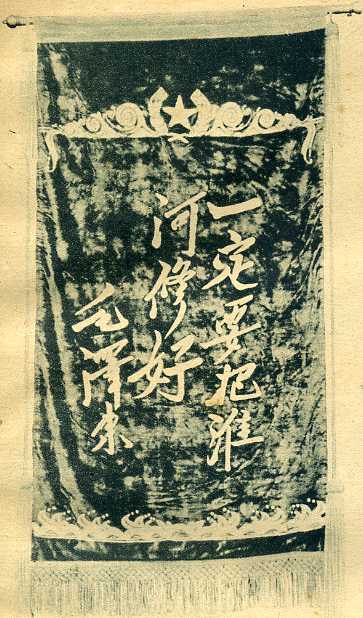 一定要把淮
河修好
毛泽东